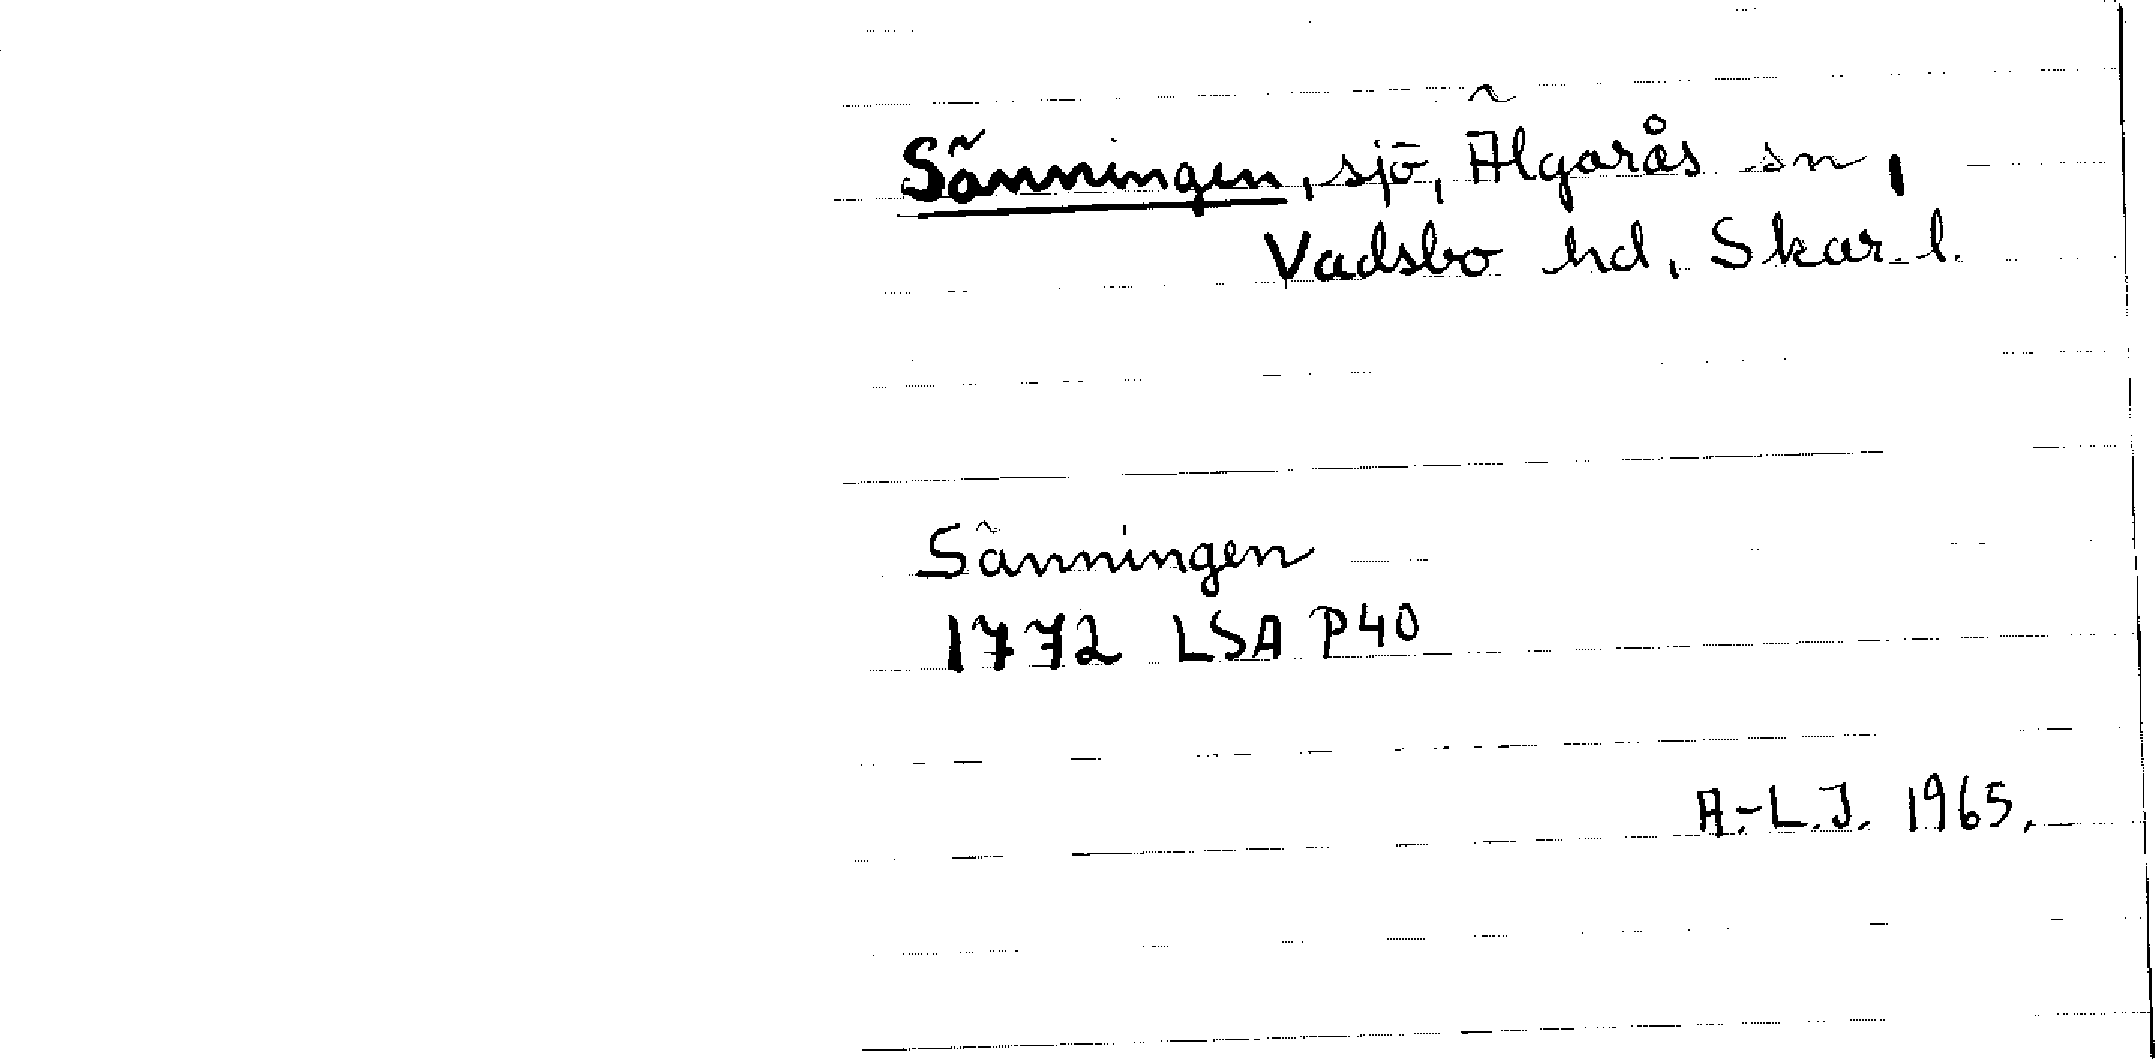 Sänningen, sjö, Älgarås sn,
Vadsbo hd, Skar. l.
Sänningen
1772 LSA P40
A.-L.J. 1965.